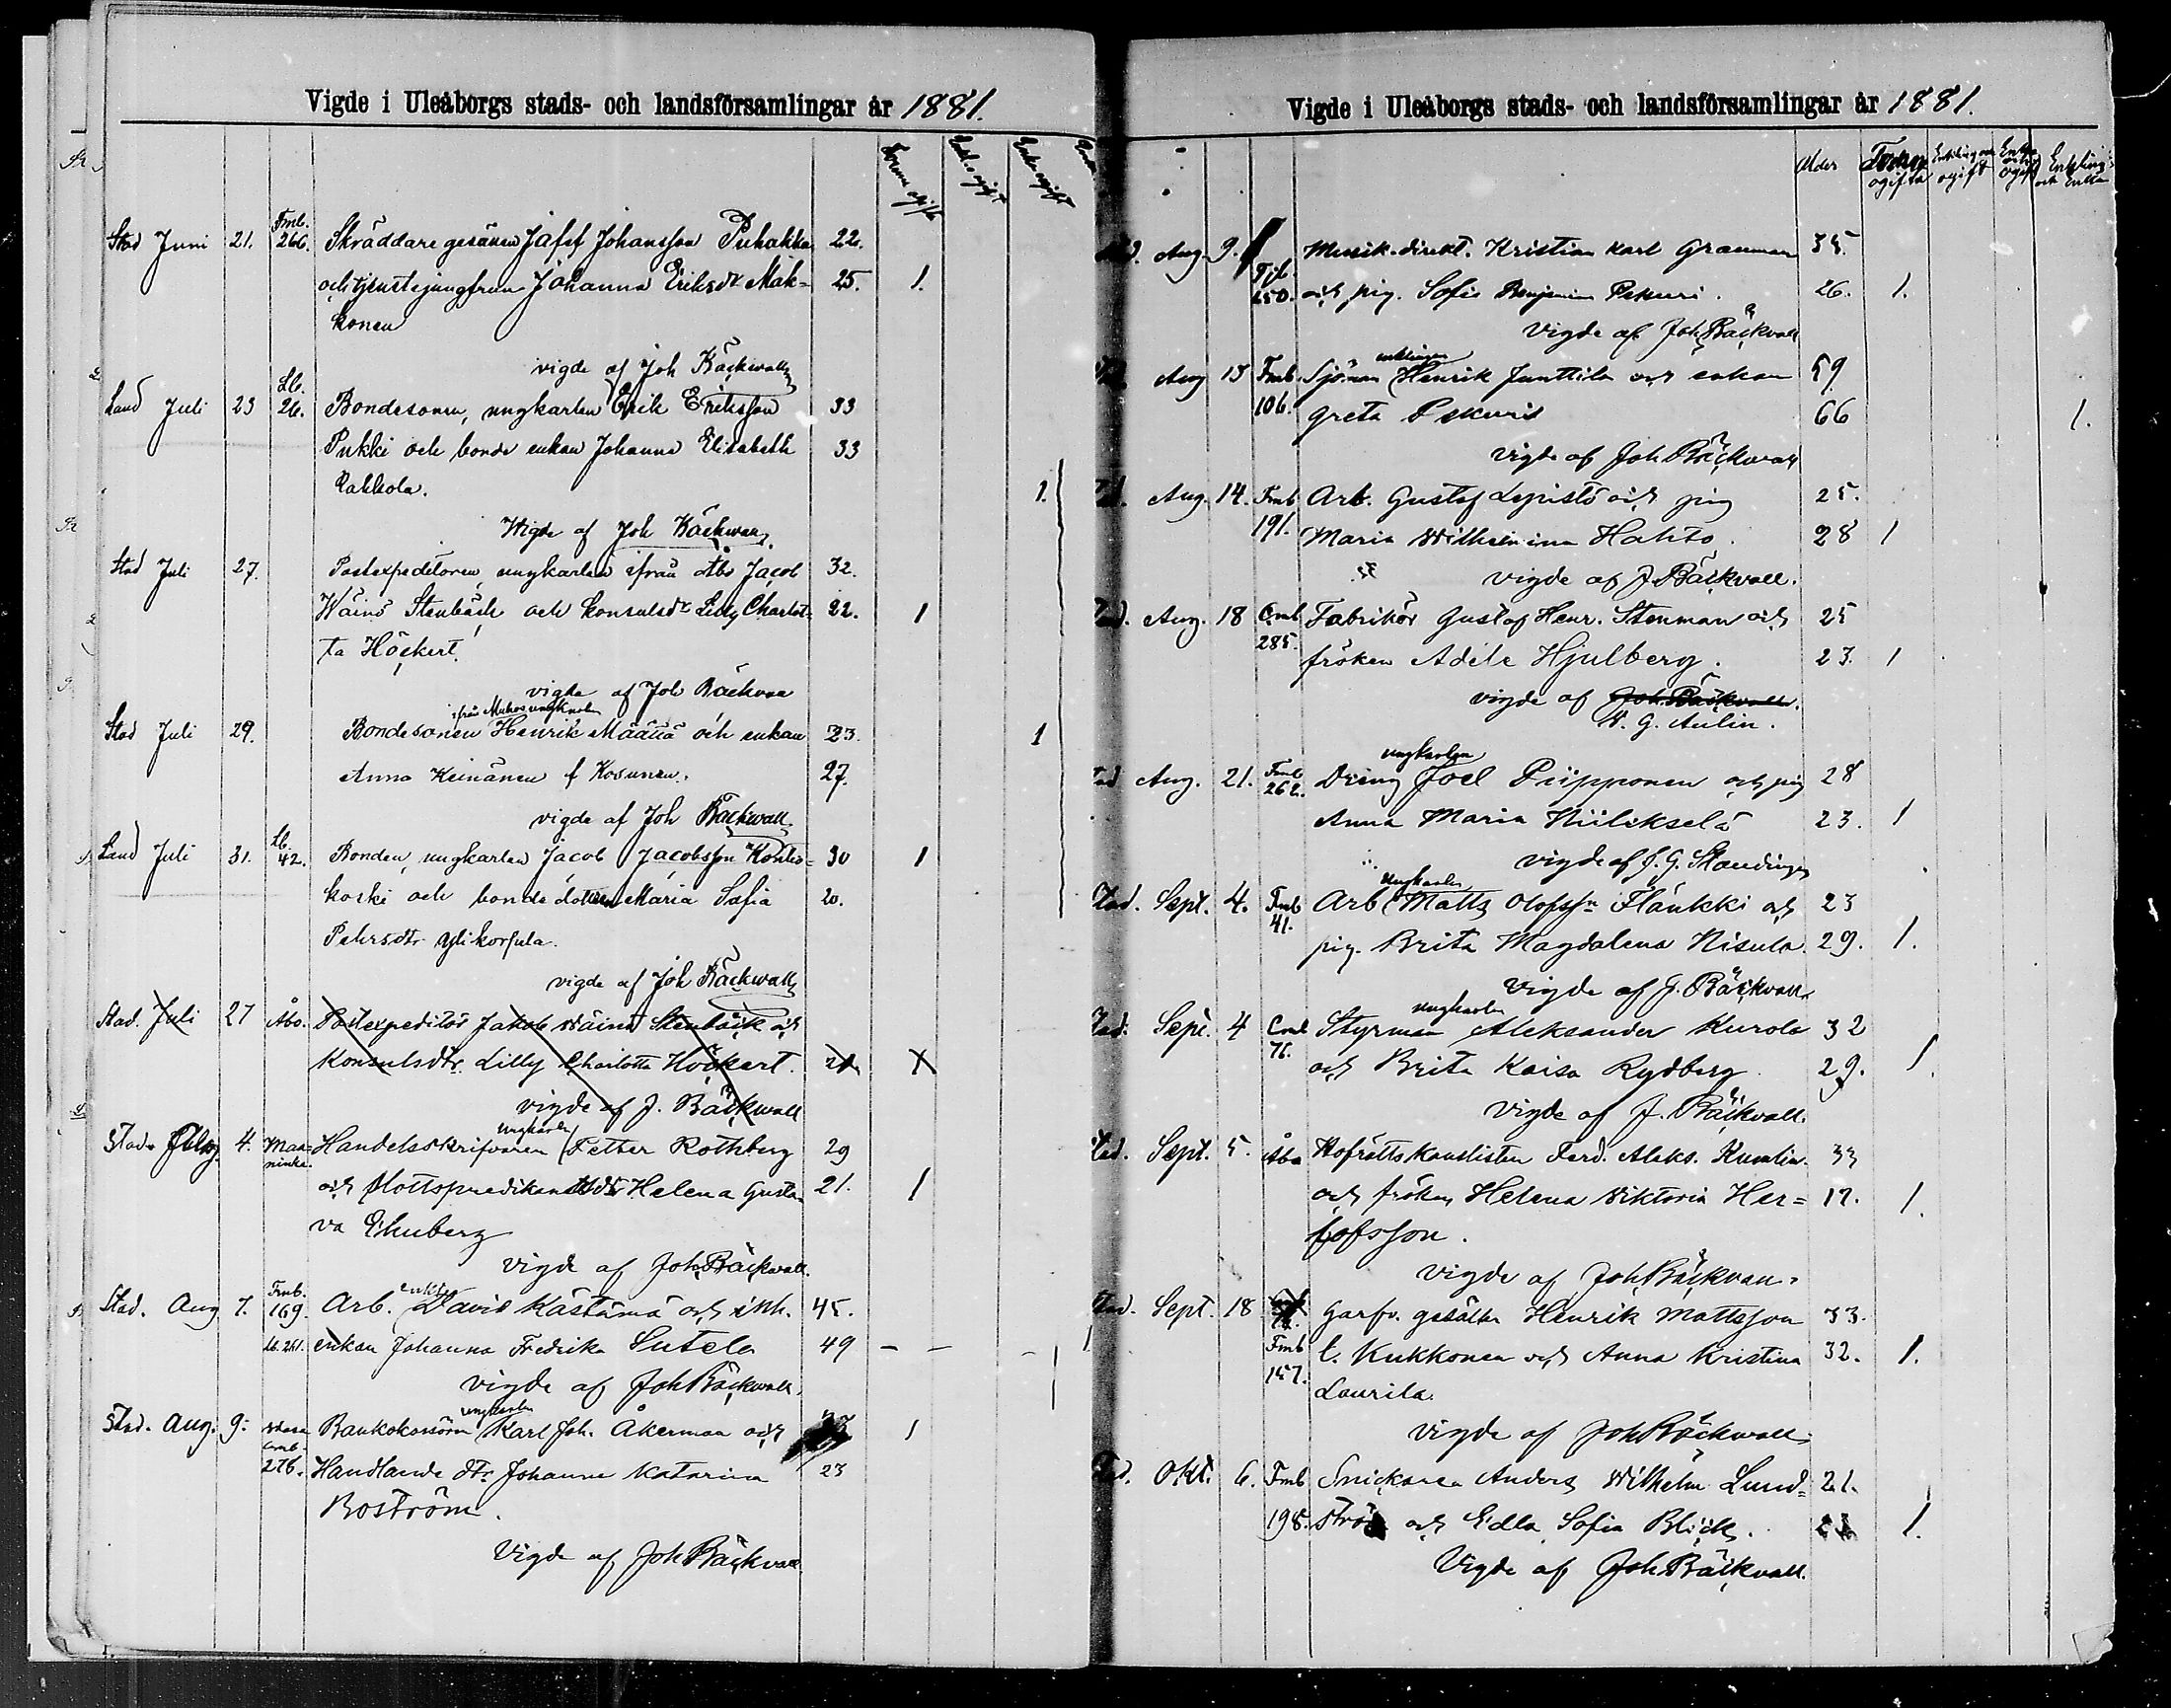 Vigde i Uleåborgs stads- och landsförsamlingar år 1881.
Stad Juni 21. Fmb. 266. Skräddare gesänen Johansson Puhakka 22.
och tjenstejungfrun Johanna Eriksdr Mak- 25. 1.
konen
vigde af Joh Bäckwall
Land Juli 23 Lb. 26. Bondesonen, ungkarlen Erik Eriksson 33
Pukki och bonde enkan Johanna Elisabeth 33
Rahkola. 1.
Wigde af Joh Bäckwall
Stad Juli 27. Postexpeditoren, ungkarlen ifrån Åbo Jacob 32.
Wäinö Stenbäck och konsulsdr Lilly Charlot- 22. 1
ta Höckert.
vigde af Joh Bäckwall
ifrån Muhos ungkarlen
Stad Juli 29. Bondesonen Henrik Määttä och enkan 23. 1
Anna Keinänen f Kosunen. 27.
vigde af Joh Bäckwall
Land Juli 31. Lb. 42. Bonden, ungkarlen Jacob Jacobsson Kontio- 30 1
koski och bonde dottren Maria Sofia 20.
Pehrsdtr Ylikorpula.
vigde af Joh Bäckwall
Stad. Juli 27 Åbo. Postexpeditör Jakob Wäinö Stenbäck och
Konsulsdtr. Lilly Charlotta Höckert.
vigde af J. Bäckwall
ungkarlen
Stad 4. Handelsskrifvaren Petter Rothberg 29
och Slottspredikantsdtr Helena Gusta- 21. 1
va Ehnberg
vigde af Joh Bäckwall.
enkl.
Stad. Aug 7. Fmb. 169. Arb. David Kästämä och inh. 45.
Lb. 241. enkan Johanna Fredrika Sutela 49 - - -
vigde af Joh Bäckwall.
ungkarlen
Stad. Aug. 9. Wasa Bankokassören Karl Joh. Åkerman och 1
Cmb. 276. Handlande dtr. Johanna Katarina 23
Boström.
Vigde af Joh Bäckwall
Vigde i Uleåborgs stads- och landsförsamlingar år 1881.
Ålder Förut ogifta Enkling och ogift Enka och ogift Enkling och Enka
Aug. 9. Musik-direkt. Kristian Karl Granman 35.
250. och pig. Sofia Benjamin Pekuri. 26. 1.
Vigde af Joh Bäckvall
enklingen
Aug 13 Fmb. Sjöman Henrik Junttila och enkan 59
106. Greta Pekuri 66 1.
vigde af Joh Bäckwall
Aug. 14. Fmb Arb. Gustaf Lepistö och pig 25.
191. Maria Wilhelmina Hahto. 28 1
vigde af J. Bäckvall.
Aug. 18 Cmb Fabrikör Gustaf Henr. Stenman och 25
285. fröken Adele Hjulberg. 23. 1
vigde af Joh. Bäckvall.
W. G. Aulin.
ungkarlen
Aug. 21. Fmb 262. Dreng Joel Piipponen och pig 28
Anna Maria Niilekselä 23. 1
vigde af J. G. Standinger
ungkarlen
Stad. Sept. 4. Fmb 41. Arb Matts Olofsson Fläukki och 23
pig. Brita Magdalena Nisula. 29. 1.
Vigde af J. Bäckvall.
ungkarlen
Stad. Sept. 4 Cmb 76. Styrman Aleksander Kurola 32
och Brita Kaisa Rydberg 29. 1.
Vigde af J. Bäckvall.
Stad. Sept. 5. Åbo Hofrättskanslisten Ferd. Aleks. Kumlin. 33
och fröken Helena Wiktoria Her= 17. 1.
Vigde af Joh Bäckvall.
Stad. Sept. 18 Garfv. gesällen Henrik Mattsson 33.
Fmb 157. t. Kukkonen och Anna Kristina 32. 1.
Laurila.
Vigde af Joh Bäckwall
Stad. Okt. 6. Fmb Snickaren Anders Wilhelm Lund= 21.
198. ström och Edla Sofia Blick. 1.
Vigde af Joh Bäckvall.